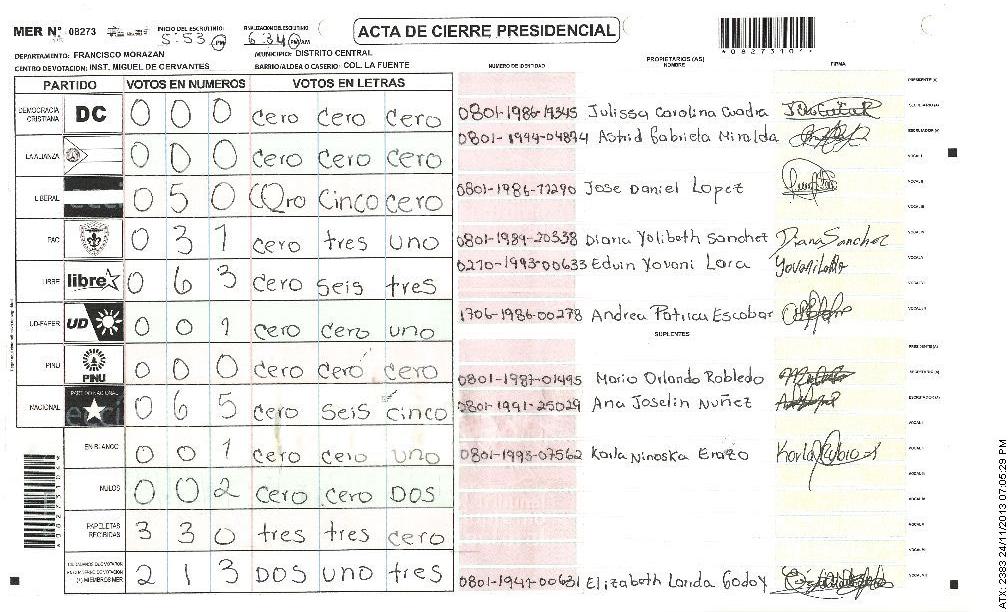 MER Nº 08273 INICIO DEL ESCRUTINIO: 5:53 PM FINALIZACION ESCRUTINIO: 6:34 PM/AM ACTA DE CIERRE PRESIDENCIAL
*08273101*
DEPARTAMENTO: FRANCISCO MORAZAN MUNICIPIO: DISTRITO CENTRAL
CENTRO DE VOTACION: INST. MIGUEL DE CERVANTES BARRIO/ALDEA O CASERIO: COL. LA FUENTE
NUMERO DE IDENTIDAD PROPIETARIOS (AS) NOMBRE FIRMA
PARTIDO VOTOS EN NUMEROS VOTOS EN LETRAS
PRESIDENTE (A)
DEMOCRACIA CRISTIANA DC 0 0 0 cero cero cero
0801-1986-19345 Julissa Carolina Cuadra SECRETARIO (A)
0801-1994-04894 Astrid Gabriela Miralda ESCRUTADOR (A)
LA ALIANZA 0 0 0 cero cero cero
VOCAL I
LIBERAL 0 5 0 cero cinco cero
0801-1986-17290 Jose Daniel Lopez VOCAL II
PAC 0 3 1 cero tres uno
0801-1989-20338 Diana Yolibeth Sanchez Diana Sanchez VOCAL IV
0210-1993-00633 Eduin Yovani Lara VOCAL V
LIBRE libre 0 6 3 cero seis tres
UD-FAPER UD 0 0 1 cero cero uno
1706-1986-00278 Andrea Patricia Escobar
SUPLENTES
PRESIDENTE (A)
PINU PINU 0 0 0 cero cero cero
0801-1987-01495 Mario Orlando Robledo SECRETARIO (A)
NACIONAL PARTIDO NACIONAL 0 6 5 cero seis cinco
0801-1991-25029 Ana Joselin Nuñez ESCRUTADOR (A)
VOCAL I
EN BLANCO 0 0 1 cero cero uno
0801-1993-07562 Karla Ninoska Erazo
NULOS 0 0 2 cero cero DOS
PAPELETAS RECIBIDAS 3 3 0 tres tres cero
(*) MIEMBROS MER 2 1 3 DOS uno tres
0801-1947-00631 Elizabeth Landa Godoy
ATX: 2383 24/11/2013 07:05:29 PM